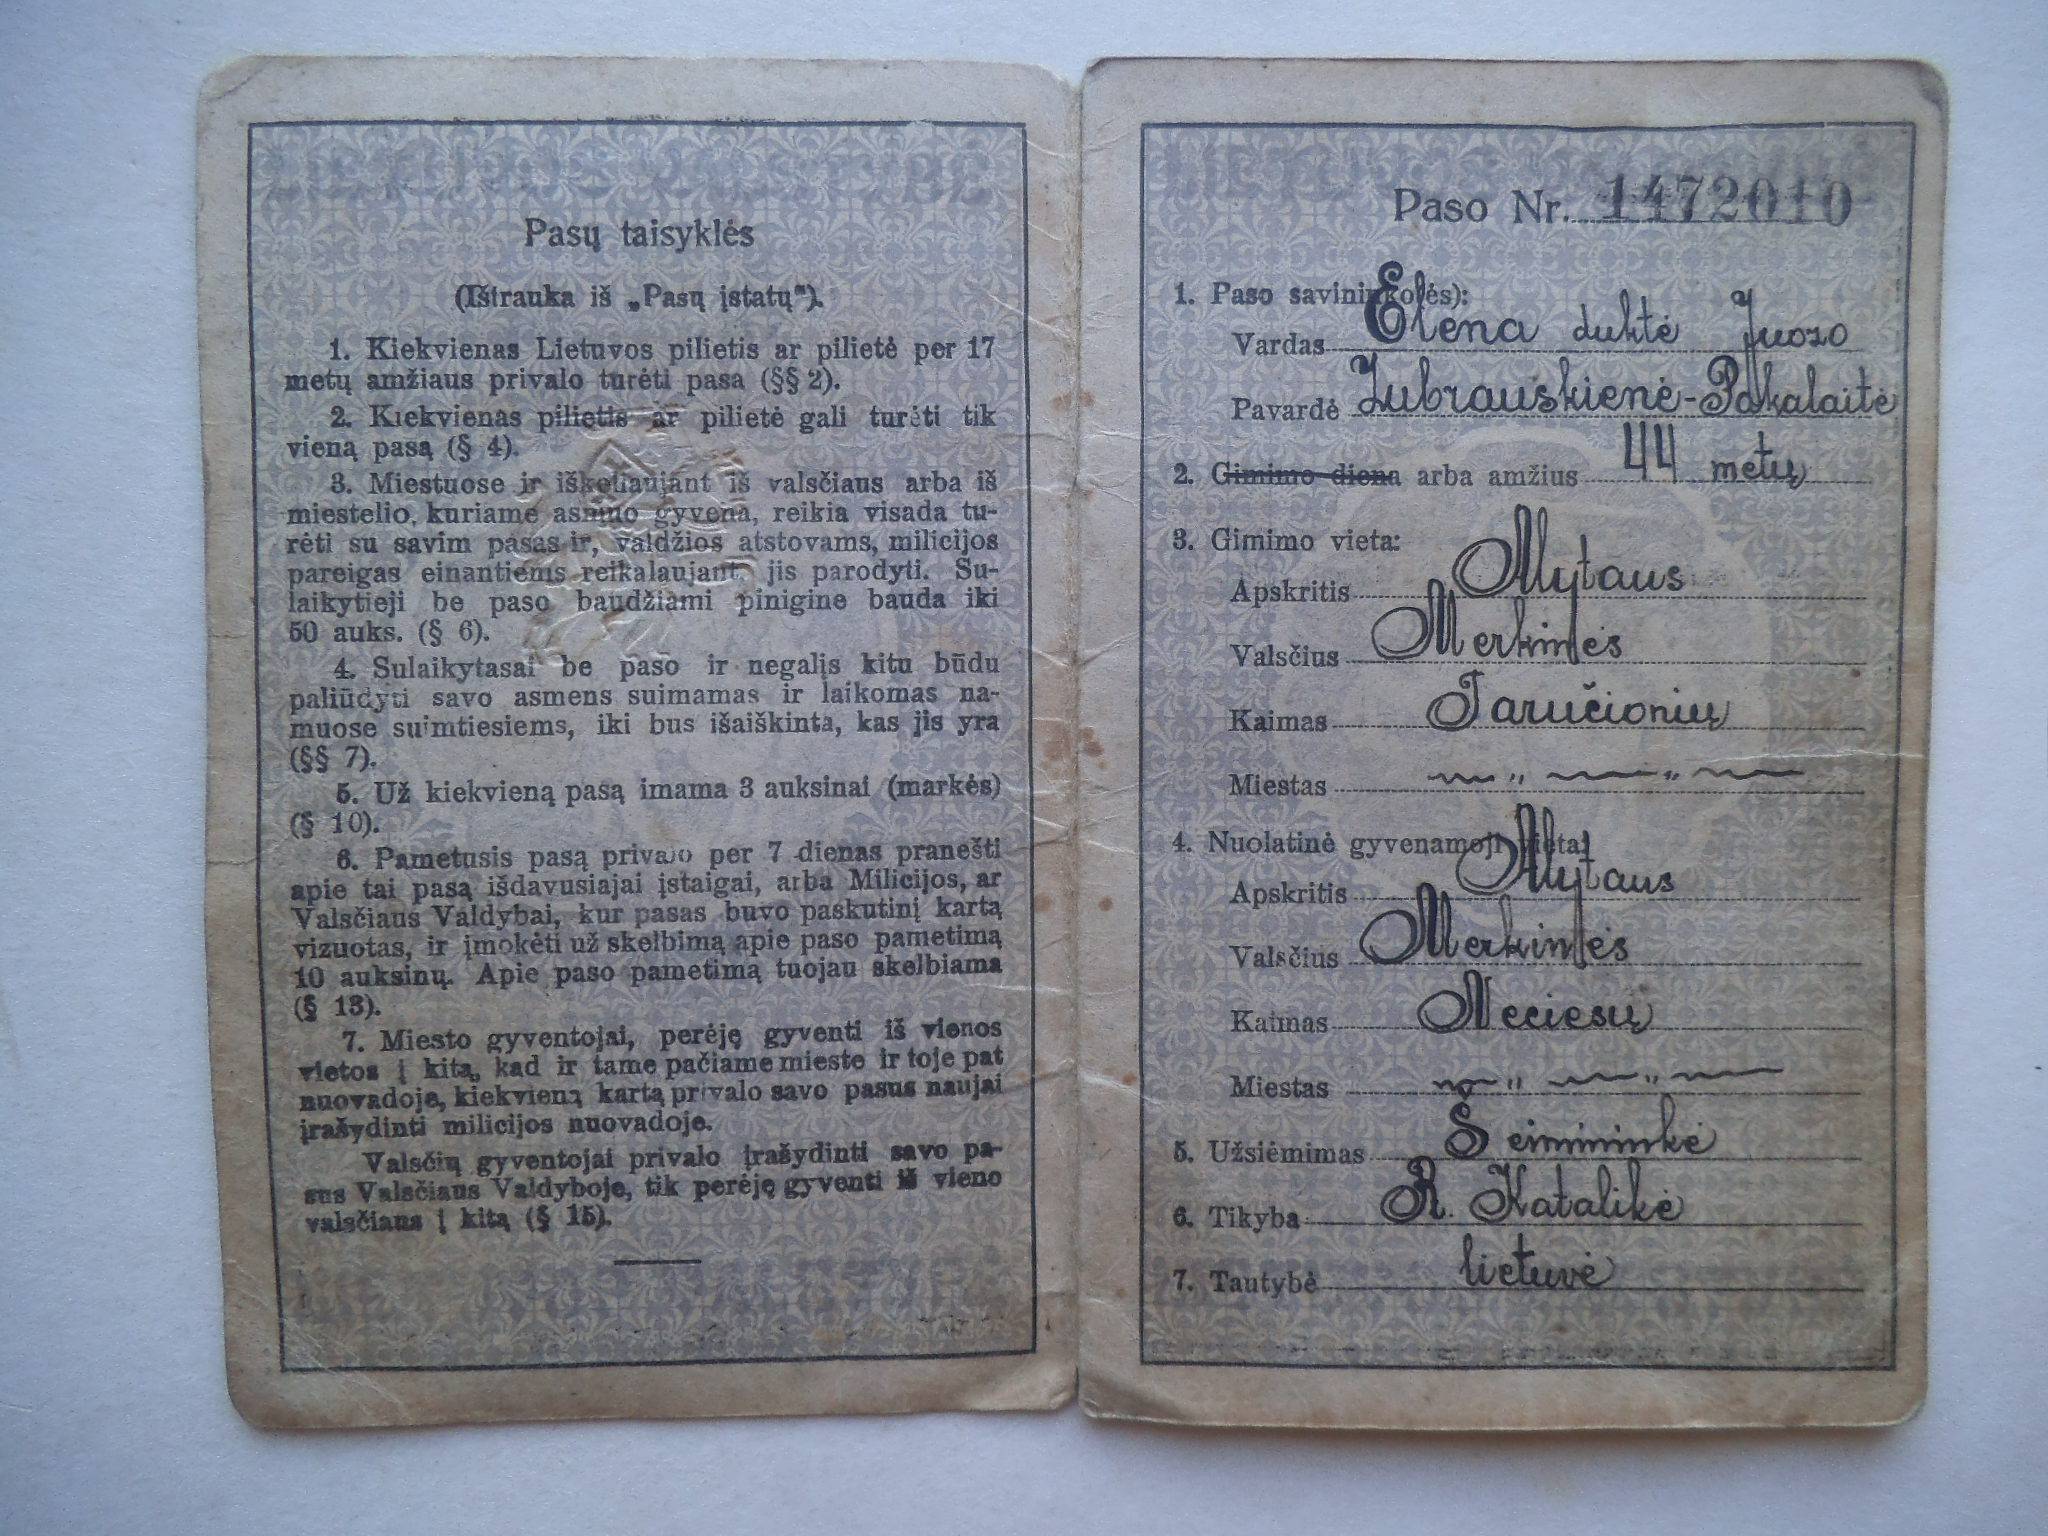 Pasų taisyklės
(Ištrauka iš „Pasų įstatų").
1. Kiekvienas Lietuvos pilietis ar pilietė per 17
metų amžiaus privalo turėti pasa (§§ 2).
2. Kiekvienas pilietis ar pilietė gali turėti tik
vieną pasą (§ 4).
3. Miestuose ir iškeliaujant iš valsčiaus arba iš
miestelio, kuriame asmuo gyvena, reikia visada tu-
rėti su savim pasas ir, valdžios atstovams, milicijos
pareigas einantiems reikalaujant, jis parodyti. Su-
laikytieji be paso baudžiami pinigine bauda iki
50 auks. (§ 6).
4. Sulaikytasai be paso ir negalįs kitu būdu
paliūdyti savo asmens suimamas ir laikomas na-
muose suimtiesiems, iki bus išaiškinta, kas jis yra
(§§ 7).
5. Už kiekvieną pasą imama 3 auksinai (markės)
(§ 10).
6. Pametusis pasą privalo per 7 dienas pranešti
apie tai pasą išdavusiajai įstaigai, arba Milicijos, ar
Valsčiaus Valdybai, kur pasas buvo paskutinį kartą
vizuotas, ir įmokėti už skelbimą apie paso pametimą
10 auksinų. Apie paso pametimą tuojau skelbiama
(§ 13).
7. Miesto gyventojai, perėję gyventi iš vienos
vietos į kitą, kad ir tame pačiame mieste ir toje pat
nuovadoje, kiekvieną kartą privalo savo pasus naujai
įrašydinti milicijos nuovadoje.
Valsčių gyventojai privalo įrašydinti savo pa-
sus Valsčiaus Valdyboje, tik perėję gyventi iš vieno
valsčiaus į kitą (§ 15).
Paso Nr. 1472010
1. Paso savininko(ės):
Vardas Elena duktė Juozo
Pavardė Zubrauskienė-Pakalaitė
2. Gimimo diena arba amžius 44 metų
3. Gimimo vieta:
Apskritis Alytaus
Valsčius Merkinės
Kaimas Taručionių
Miestas — „ — „ —
4. Nuolatinė gyvenamoji vieta:
Apskritis Alytaus
Valsčius Merkinės
Kaimas Neciesų
Miestas — „ — „ —
5. Užsiėmimas Šeimininkė
6. Tikyba R. Katalikė
7. Tautybė lietuvė